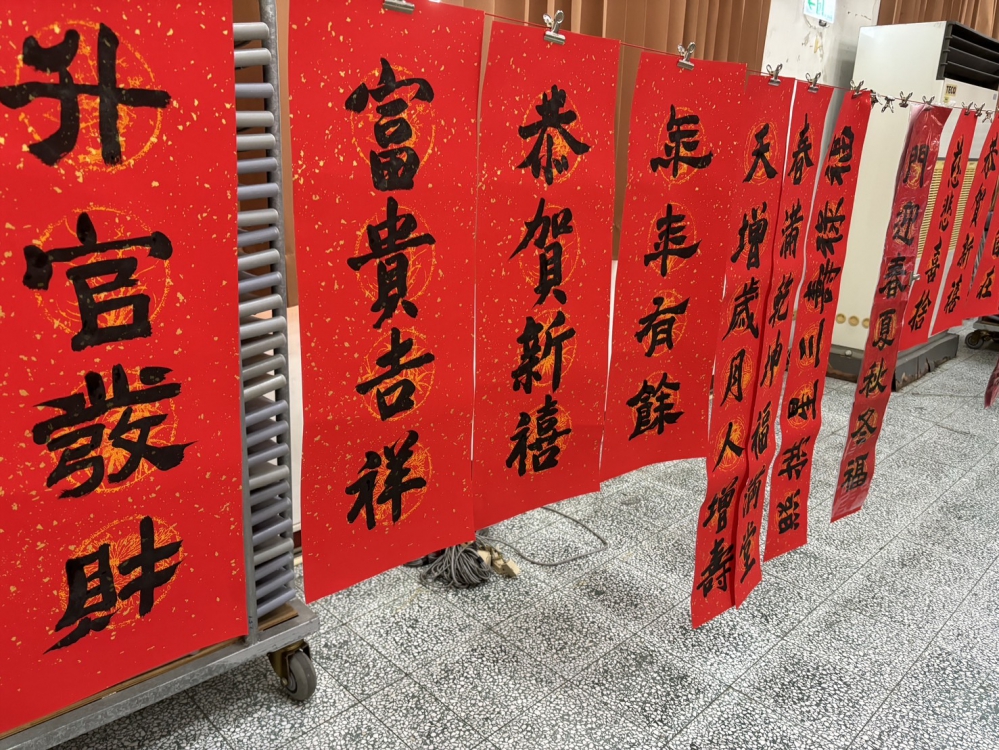 升官發財
富貴吉祥
恭賀新禧
年年有餘
天增歲月人增壽
春滿乾坤福滿堂
門迎春夏秋冬福
慈悲喜捨
恭賀新禧
TECO